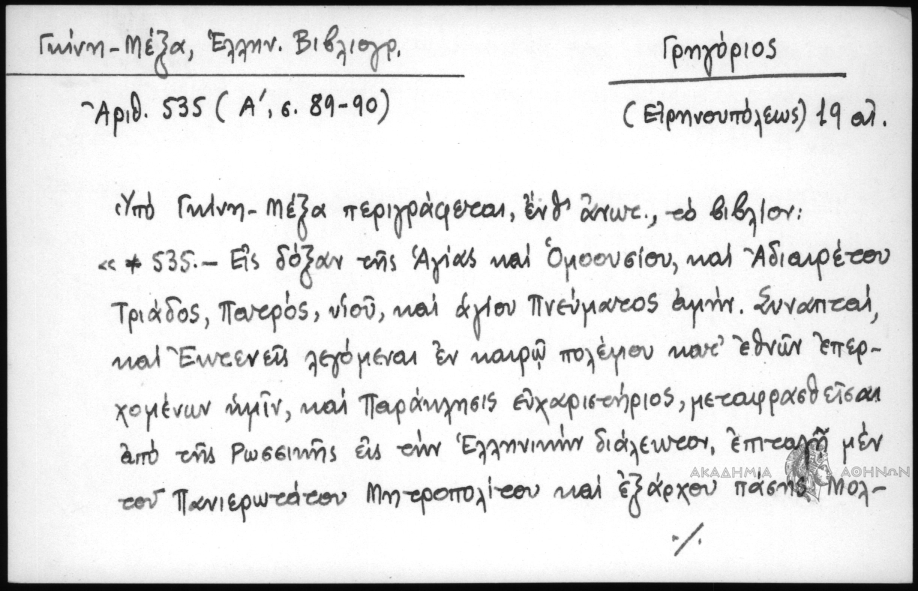 Γκίνη-Μέξα, Ἑλλην. Βιβλιογρ.
Γρηγόριος
Ἀριθ. 535 (Α', σ. 89-90)
(Εἰρηνουπόλεως) 19 αἰ.
Ὑπό Γκίνη-Μέξα περιγράφεται, ἔνθ' ἄνωτ., τό βιβλίον:
«* 535.- Εἰς δόξαν τῆς Ἁγίας καί Ὁμοουσίου, καί Ἀδιαιρέτου
Τριάδος, Πατρός, υἱοῦ, καί ἁγίου Πνεύματος ἀμήν. Συναπταί,
καί Ἐκτενεῖς λεγόμεναι ἐν καιρῷ πολέμου κατ' ἐθνῶν ἐπερ-
χομένων ἡμῖν, καί Παράκλησις εὐχαριστήριος, μεταφρασθεῖσαι
ἀπό τῆς Ρωσσικῆς εἰς τήν Ἑλληνικήν διάλεκτον, ἐπιταγῇ μέν
τοῦ Πανιερωτάτου Μητροπολίτου καί ἐξάρχου πάσης Μολ-
ΑΚΑΔΗΜΙΑ ΑΘΗΝΩΝ
./.